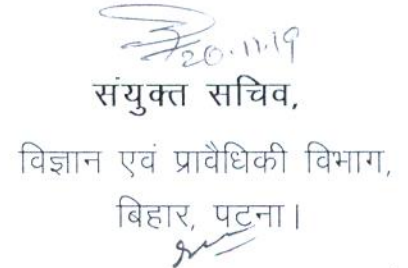 20.11.19
संयुक्त सचिव,
विज्ञान एवं प्रावैधिकी विभाग,
बिहार, पटना।